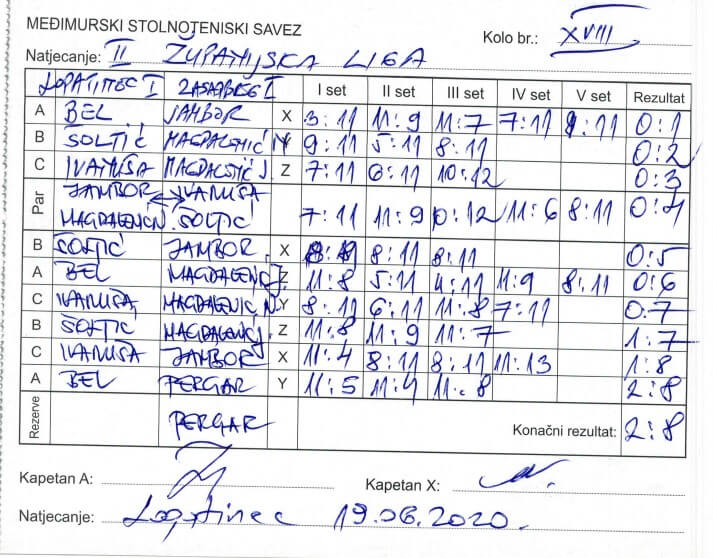 MEĐIMURSKI STOLNOTENISKI SAVEZ
Kolo br.: XVIII
Natjecanje: II ŽUPANIJSKA LIGA
LOPATINEC I ZASADBREG I I set II set III set IV set V set Rezultat
A BEL JAMBOR X 3:11 11:9 11:7 7:11 9:11 0:1
B ŠOLTIĆ MAGDALENIĆ N Y 9:11 5:11 8:11 0:2
C IVANUŠA MAGDALENIĆ J Z 7:11 6:11 10:12 0:3
Par JAMBOR IVANUŠA
MAGDALENIĆ N. ŠOLTIĆ 7:11 11:9 10:12 11:6 8:11 0:4
B ŠOLTIĆ JAMBOR X 8:11 8:11 0:5
A BEL MAGDALENIĆ J. Z 11:8 5:11 4:11 11:9 8:11 0:6
C IVANUŠA MAGDALENIĆ N. Y 8:11 6:11 11:8 7:11 0:7
B ŠOLTIĆ MAGDALENIĆ J Z 11:8 11:9 11:7 1:7
C IVANUŠA JAMBOR X 11:4 8:11 8:11 11:13 1:8
A BEL PERGAR Y 11:5 11:4 11:8 2:8
Rezerve PERGAR Konačni rezultat: 2:8
Kapetan A: Kapetan X:
Natjecanje: Lopatinec 19.06.2020.